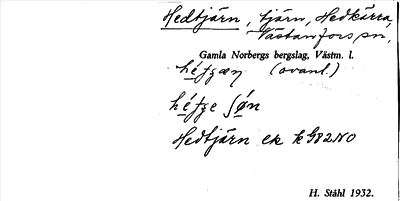 Hedtjärn, tjärn, Hedkärra,
Västanfors sn,
Gamla Norbergs bergslag, Västm. l.
(ovanl.)
Hedtjärn ek k G82NO
H. Ståhl 1932.